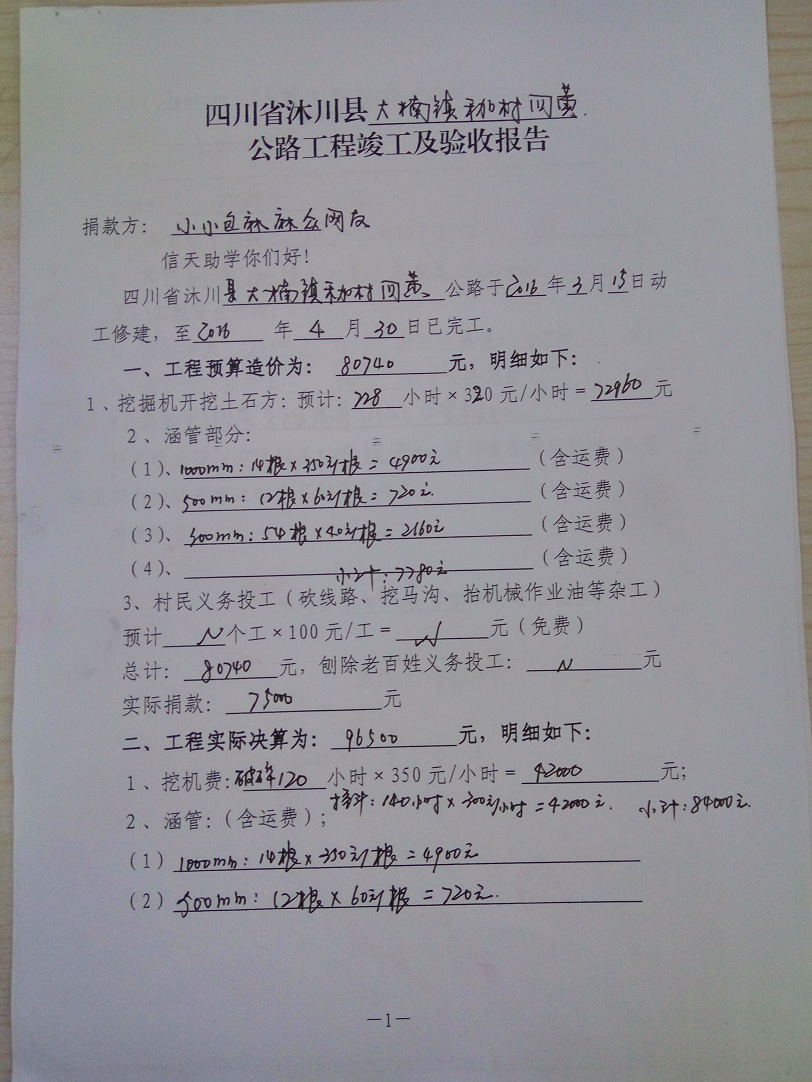 四川省沐川县大楠镇和村闫黄
公路工程竣工及验收报告
捐款方：小小包麻麻众网友
信天助学你们好！
四川省沐川县大楠镇和村闫黄公路于2016年3月15日动
工修建，至2016年4月30日已完工。
一、工程预算造价为：80740元，明细如下：
1、挖掘机开挖土石方：预计：228小时×320元/小时＝72960元
2、涵管部分：
（1）、1000mm：14根×350元/根＝4900元（含运费）
（2）、500mm：12根×60元/根＝720元（含运费）
（3）、300mm：54根×40元/根＝2160元（含运费）
（4）、小计：7780元（含运费）
3、村民义务投工（砍线路、挖马沟、抬机械作业油等杂工）
预计N个工×100元/工＝N元（免费）
总计：80740元，刨除老百姓义务投工：N元
实际捐款：75000元
二、工程实际决算为：96500元，明细如下：
1、挖机费：破碎120小时×350元/小时＝42000元；
挖斗：140小时×300元/小时＝42000元. 小计：84000元.
2、涵管：（含运费）；
（1）1000mm：14根×350元/根＝4900元
（2）500mm：12根×60元/根＝720元.
－1－